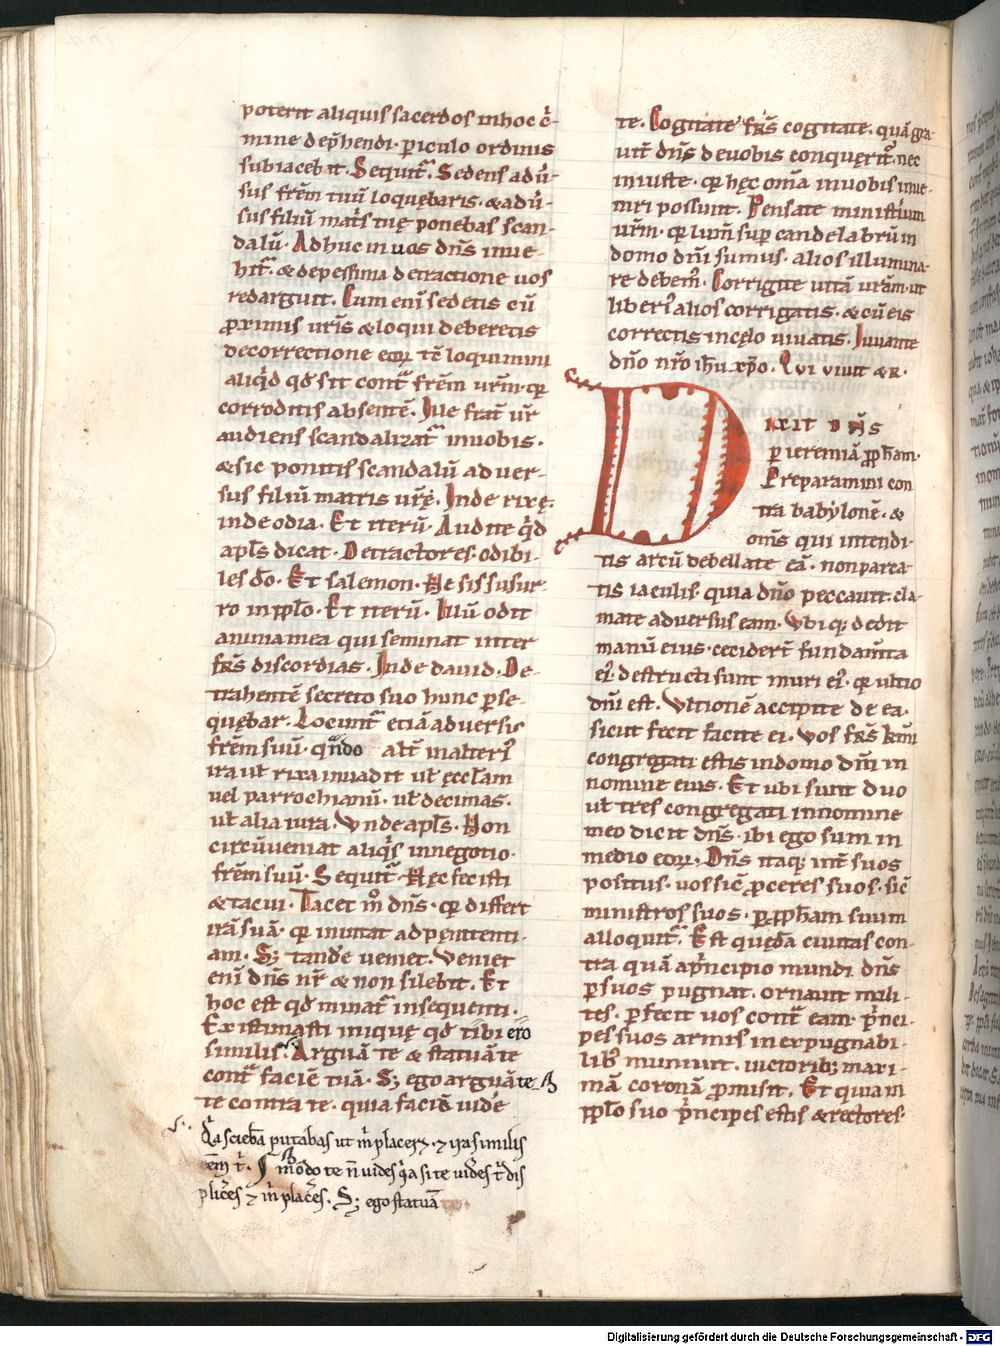 poterit aliquis sacerdos in hoc c̾-
mine dep̾hendi · p̱iculo ordinis
subiacebit. Sequit᷑. Sedens adu̾-
sus frēm tuū loquębaris · & adu̾-
sus filiū mat̾s tuę ponebas scan-
dalū · Adhuc in uos dn̄s inue-
hit᷑ · & de pessima detractione uos
redarguit. Cum eni̅ sedetis cū
ꝓximis ur̄is & loqui deberetis
de correctione eoꝝ tē loquimini
aliq̾d qd̄ sit cont᷑ frēm urm̄ · qꝛ
corroditis absentē. Iue frat̾ ur̄
audiens scandalizat᷑ in uobis ·
& sic ponitis scandalū aduer-
sus filiū matris ur̄ę. Inde rixę ·
inde odia · Et iterū · Audite q̾d
apl̄s dicat · Detractores · odibi-
les dō · Et salemon · Ne sis susur-
ro in pp̄lo · Et iterū · Illū odit
anima mea qui seminat inter
fr̄s discordias · Inde dauid · De-
trahentē secreto suo hunc p̱se-
quębar · Locunt᷑ etiā aduersis
frēm suū · qn̄do alt̾ in alteri᷒
ira ut̄ rixa inuadit ut̄ ęccl̄am
uel parrochianū · ut̄ decimas ·
ut̄ alia iura · Vnde apl̄s · Non
circūueniat aliq̾s in negotio ·
frēm suū · Sequit᷑ · Hęc fecisti
& tacui · Tacet m̊ dn̄s · qꝛ differt
irā suā · qꝛ inuitat ad pęnitenti-
am · Sꝫ tandē ueniet · Veniet
eni̅ dn̄s nr̄ & non silebit · Et
hoc est qd̄ minat᷑ in sequenti ·
Existimasti inique qd̄ tibi ero
similis · Arguā te & statuā te
cont᷑ faciē tuā · Sꝫ ego arguā te
te contra te · quia faciē uide
Q̾a scieb̄a putabas ut m̾ placeꝛꝫ · ⁊ ita similis
eēm t̾ · m̊do te n̄ uides q̾a si te uid̾es t̾ dis
plic̾es ⁊ m̾ plac̾es · Sꝫ ego statuā
te · Cogitate fr̄s cogitate · quā gra-
uit̾ dn̄s de uobis conquęrit᷑ · nec
iniuste · qꝛ hęc om̄a in uobis inue-
niri possunt · Pensate ministiūm
ur̄m · qꝛ lum̄ sup̱ candelabrū in
domo dn̄i sumus · alios illumina-
re debem᷒ · Corrigite uitā ur̄am · ut
liberi᷒ alios corrigatis · & cū eis
correctis in cęlo uiuatis · Iuuante
dn̄o nr̄o ih̄u xp̄o · Qui uiuit & R ·
DIXIT DN̄S
p̱ ieremiā pp̄ham ·
Preparamini con
tra babylonē · &
om̄s qui intendi-
tis arcū debellate eā · non parca-
tis iaculis · quia dn̄o peccauit · cla-
mate aduersus eam · Vbiqꝫ dedit
manū eius · cecider̄t fundam̄ta
ei᷒ · destructi sunt muri ei᷒ · qꝛ ultio
dn̄i est · Vltionē accipite de ea ·
sicut fecit facite ei · Vos fr̄s kmi
congregati estis in domo dn̄i in
nomine eius · Et ubi sunt duo
ut̄ tres congregati in nomine
meo dicit dn̄s · ibi ego sum in
medio eoꝝ · Dn̄s itaqꝫ int̾ suos
positus · uos sic̄ ꝓceres suos · sic̄
ministros suos · p̱ pp̄ham suum
alloquit᷑ · Est quęda̅ ciuitas con-
tra quā a p̾ncipio mundi dn̄s
p̱ suos pugnat · ornauit mili-
tes · p̱fecit uos cont᷑ eam · p̾nci-
pes suos armis inexpugnabi-
lib᷒ muniuit · uictoribꝫ maxi-
mā coronā ꝓmisit · Et quia in
pp̄lo suo p̾ncipes estis & rectores ·
Digitalisierung gefördert durch die Deutsche Forschungsgemeinschaft - DFG